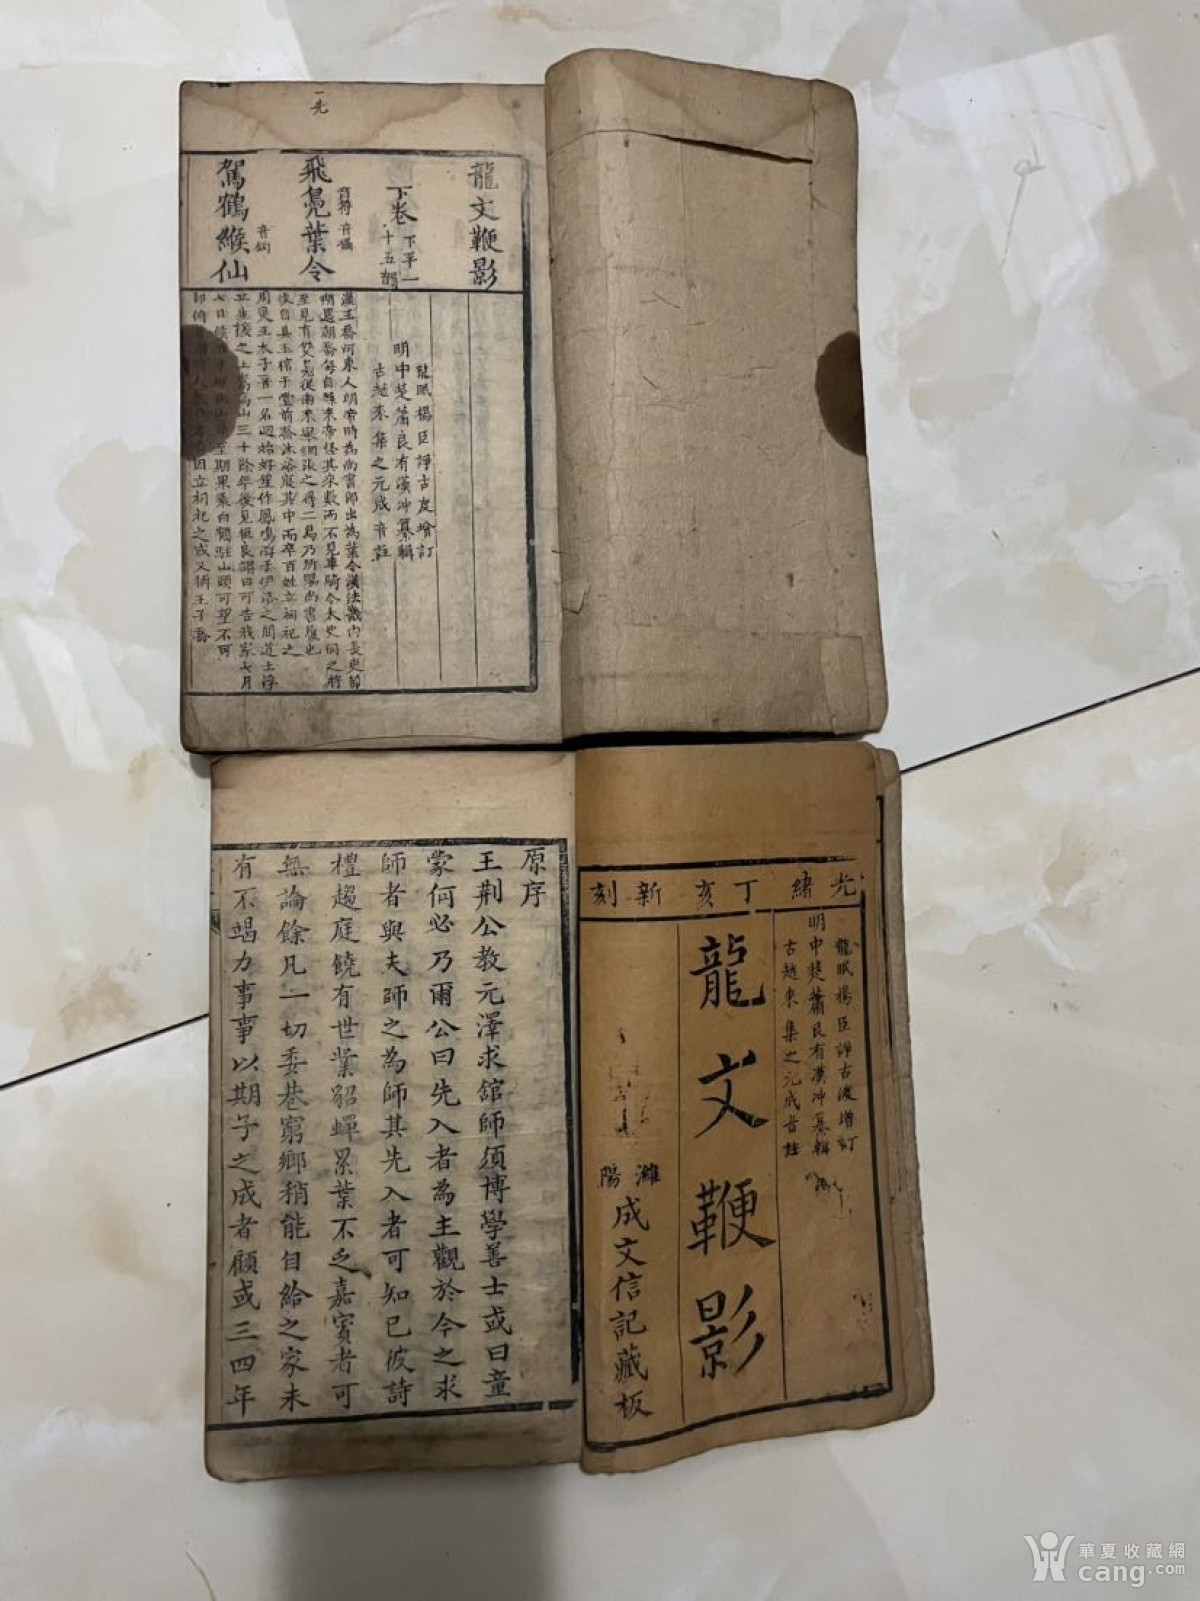 一先
龍文鞭影
下卷
下平一
十五
龍眠楊臣諍古度增訂
明中楚蕭良有漢冲纂輯
古越來集之元成音註
飛鳧葉令
音符 音攝
駕鶴緱仙
漢王喬河東人明帝時為尚書郎出為葉令漢法畿內長吏節
朔還朝喬每自縣來帝怪其來數而不見車騎令太史伺之將
至見有雙鳧從南來舉網張之得二舄乃所賜尚書履也
後自具玉棺于堂前喬沐浴寢其中而卒百姓立祠祀之
周靈王太子晉一名 好笙作鳳鳴游于伊洛之間道士浮
丘生接之上嵩高山三十餘年後見桓良謂曰可告我家七月
七日候 山 至期果乘白鶴駐山頭可望不可
因立祠祀之或又稱王子喬
光緒丁亥新刻
龍眠楊臣諍古度增訂
明中楚蕭良有漢冲纂輯
古越來集之元成音註
龍文鞭影
濰陽
成文信記藏板
原序
王荆公教元澤求舘師須博學善士或曰童
蒙何必乃爾公曰先入者為主觀於今之求
師者與夫師之為師其先入者可知已彼詩
禮趨庭饒有世業貂蟬累葉不乏嘉賓者可
無論餘凡一切委巷窮鄉稍能自給之家未
有不竭力事事以期子之成者顧或三四年
華夏收藏網
cang.com